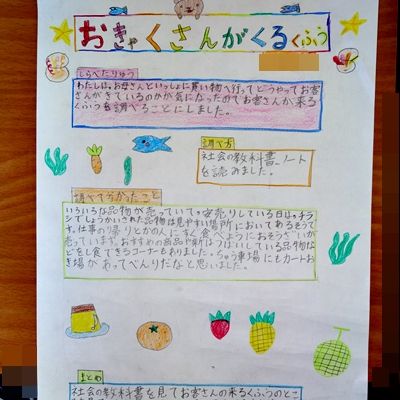 おきゃくさんがくるくふう
しらべたりゆう
わたしは、お母さんといっしょに買い物へ行ってどうやってお客
さんがきているのかが気になったのでお客さんが来る
くふうを調べることにしました。
調べ方
社会の教科書、ノート
を読みました。
調べて分かったこと
いろいろな品物が売っていて。安売りしている日は、チラ
シでしょうかいされた品物は見やすい場所においてあるそうで
す。仕事の帰りとかの人にすぐ食べようにおそうざいが
売っています。おすすめの商品や
などをし食できるコーナーもありました。ちゅう車場にもカートお
き場があってべんりだなと思いました。
まとめ
社会の教科書を見てお客さんの来るくふうのとこ